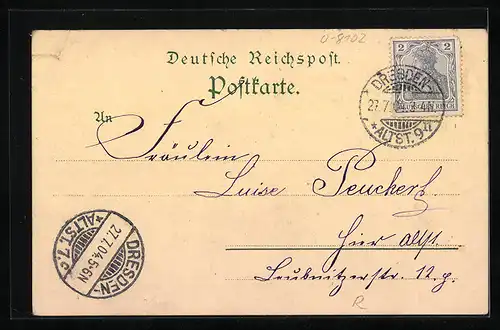 0-8102
Deutsche Reichspost.
Postkarte.
2 2
DEUTSCHES REICH
DRESDEN-
27.7.04. 3-4N
*ALTST. 9
An
Fräulein
Luise Peuckert
Hier Altst.
Leubnitzerstr. 12. p.
DRESDEN-
27.7.04.5-6N
*ALTST. 7. c
R